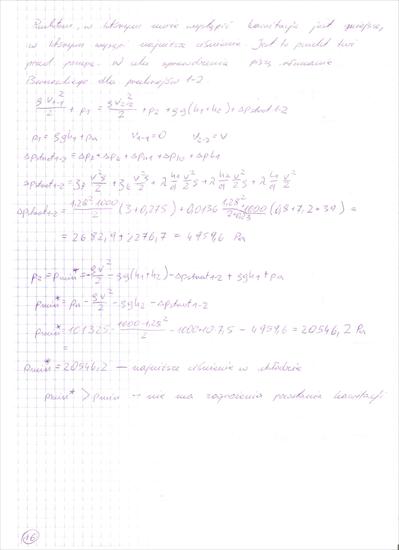 Punktem, w którym może wystąpić kawitacja jest miejsce,
w którym występuje najniższe ciśnienie. Jest to punkt tuż
przed pompą. W celu sprawdzenia piszę równanie
Bernoulliego dla przekrojów 1-2
ρv₁₋₁²/2 + p₁ = ρv₂₋₂²/2 + p₂ + ρg(h₁+h₂) + Δpstrat1-2
p₁ = ρgh₁ + pa v₁₋₁ = 0 v₂₋₂ = v
Δpstrat1-2 =
Δpstrat1-2 = 1,28²·1000/2 (3+0,275) + 0,0136 1000 (0,8+7,2+39) =
= 2682,9 + 2276,7 = 4959,6 Pa
p₂ = pmin* = -ρv²/2 - ρg(h₁+h₂) - Δpstrat1-2 + ρgh₁ + pa
pmin* = pa - ρv²/2 - ρgh₂ - Δpstrat1-2
pmin* = 101325 - 1000·1,28²/2 - 1000·10·7,5 - 4959,6 = 20546,2 Pa
=
pmin* = 20546,2 — najniższe ciśnienie w układzie
pmin* > pmin → nie ma zagrożenia powstania kawitacji
16